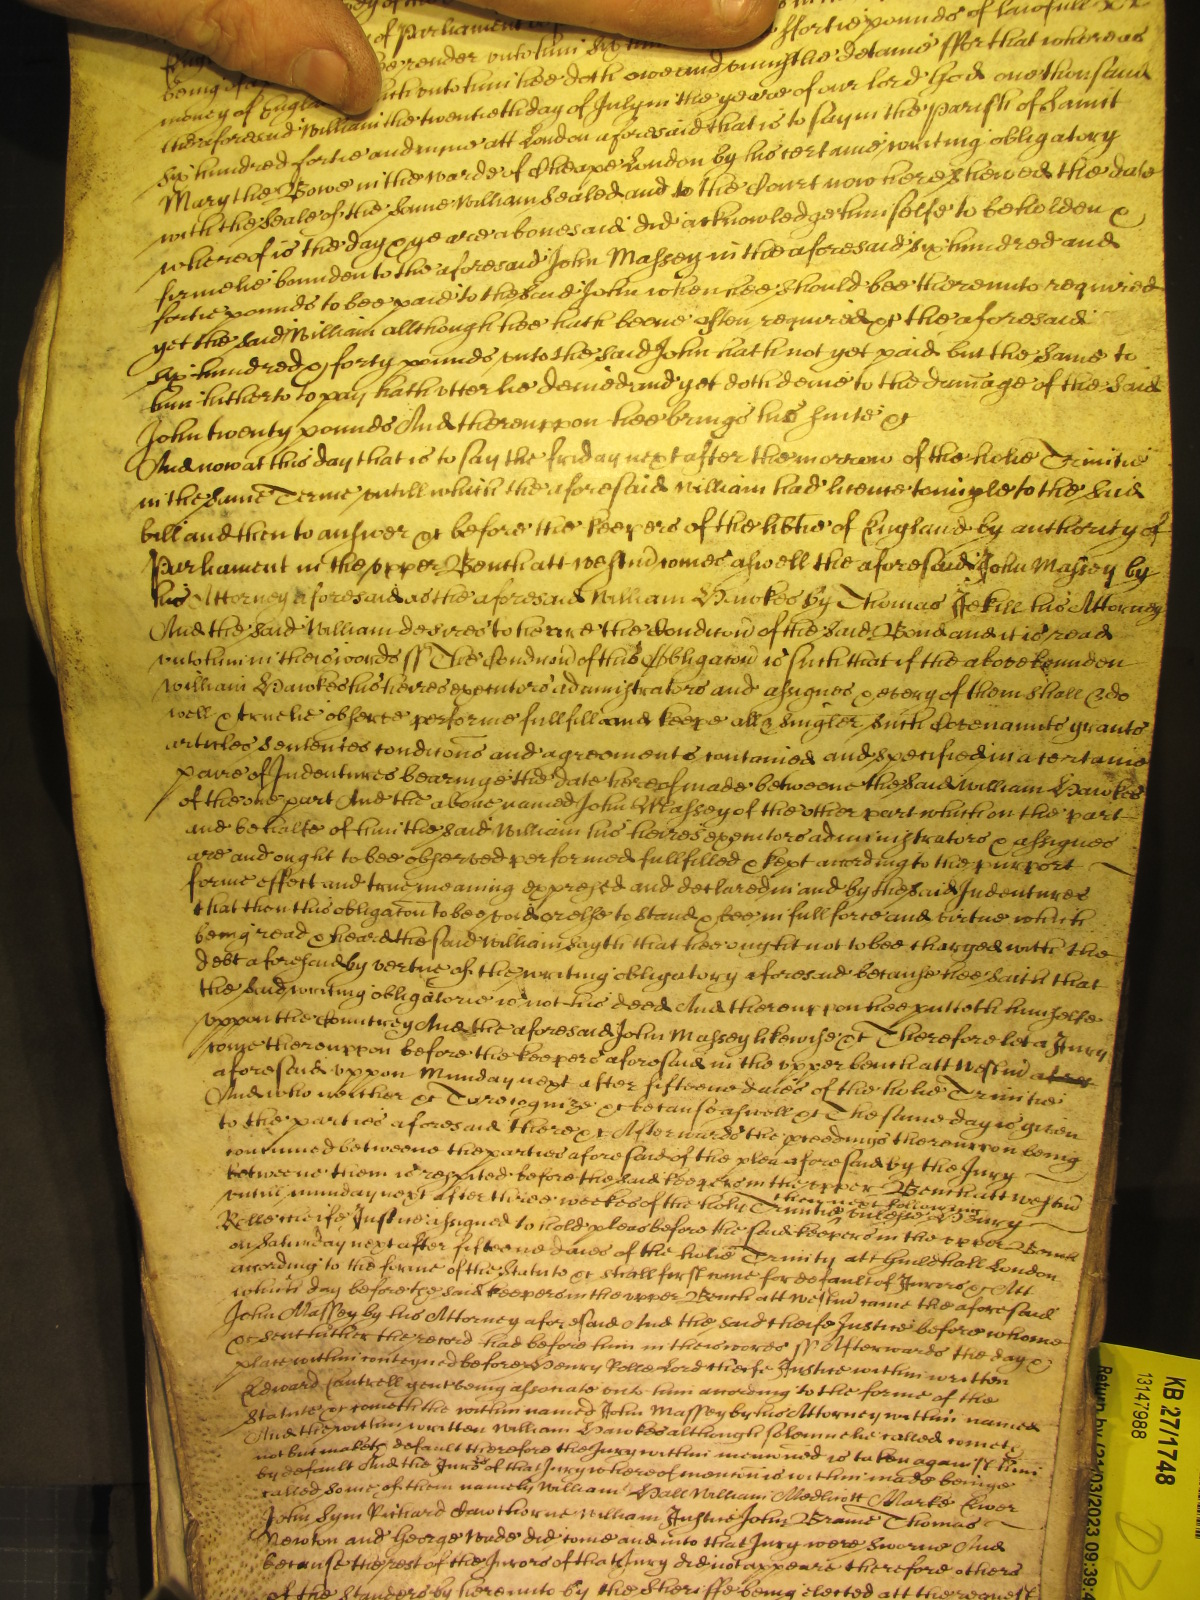 of Parliament
be render unto him six hundred & fortie pounds of lawfull
money of England which unto him hee doth owe and uniustlie detaine ffor that whereas
the aforesaid William the twentieth day of July in the yeare of our lord God one thousand
six hundred fortie and nine att London aforesaid that is to say in the parish of Saint
Mary the Bowe in the warde of Cheape London by his certaine writing obligatory
with the seale of the same William sealed and to the Court now here shewed the date
whereof is the day & yeare abovesaid did acknowledge himselfe to be holden &
firmelie bounden to the aforesaid John Massey in the aforesaid six hundred and
fortie pounds to bee paid to the said John when hee should bee thereunto required
yet the said William allthough hee hath beene often required &c the aforesaid
six hundred & forty pounds unto the said John hath not yet paid but the same to
him hitherto to pay hath utterlie denied and yet doth denie to the damage of the said
John twenty pounds And thereuppon hee brings his suite &c
And now at this day that is to say the friday next after the morrow of the holie Trinitie
in the same Terme untill which the aforesaid William had licence to imple to the said
bill and then to answer &c before the keepers of the lib'tie of England by authority of
Parliament in the upper Bench att Westm' comes aswell the aforesaid John Massey by
his Attorney aforesaid as the aforesaid William Hawkes by Thomas Jekill his Attorney
And the said William desires to heare the Condic'on of the said Bond and it is read
unto him in theis words ss The Condic'on of this Obligac'on is such that if the above bounden
William Hawkes his heires executors administrators and assignes & every of them shall & do
well & truelie observe performe fullfill and keepe all & singler such Covenaunts grants
articles sentences condic'ons and agreements contained and specified in a certaine
paire of Indentures bearinge the date hereof made betweene the said William Hawkes
of the one part And the above named John Massey of the other part which on the part
and behalfe of him the said William his heires executors administrators & assignes
are and ought to bee observed performed fullfilled & kept according to the purport
forme effect and true meaning expressed and declared in and by the said Indentures
that then this obligac'on to bee void or else to stand & bee in full force and virtue which
being read & heard the said William sayth that hee ought not to bee charged with the
debt aforesaid by vertue of the writing obligatory aforesaid because hee saith that
the said writing obligatorie is not his deed And thereuppon hee putteth himselfe
uppon the Countrey And the aforesaid John Massey likewise &c Therefore let a Jury
come thereuppon before the keepers aforesaid in the upper bench att Westm'
aforesaid uppon Munday next after fifteene daies of the holie Trinitie
And who neither &c To recognize &c because aswell &c The same day is given
to the parties aforesaid there &c Afterwards the p'ceedings thereuppon being
continued betweene the parties aforesaid of the plea aforesaid by the Jury
betweene them is respited before the said keepers in the upper Bench att Westm'
untill munday next after three weekes of the holy Trinitie then next following unlesse Henry
Rolle cheife Justice assigned to hold pleas before the said keepers in the upper Bench
on Saturday next after fifteene daies of the holie Trinity att Guildhall London
according to the forme of the Statute &c shall first come for default of Jurors &c Att
which day before the said keepers in the upper Bench att Westm' came the aforesaid
John Massey by his Attorney aforesaid And the said cheife Justice before whome
&c sent hither the record had before him in theis words ss Afterwards the day &
place within conteyned before Henry Rolle Lord cheife Justice within written
Edward Cantrell gent being associate unto him according to the forme of the
Statute &c cometh the within named John Massey by his Attorney within named
And the within written William Hawkes although solemnelie called comes
not but maketh default therefore the Jury within menc'oned is to be taken against him
by default And the Jurors of that Jury whereof menc'on is within made beinge
called some of them namely William Hall William Medlicott Marke Ewer
John Sym Richard Hawthorne William Justice John Brame Thomas
Newton and George Wade did come and into that Jury were sworne And
because the rest of the Jurors of that Jury did not appeare therefore others
of the Standers by hereunto by the Sheriffe being elected att the request
KB 27/1748
13147988
Return by (21/03/2023 09:39:4